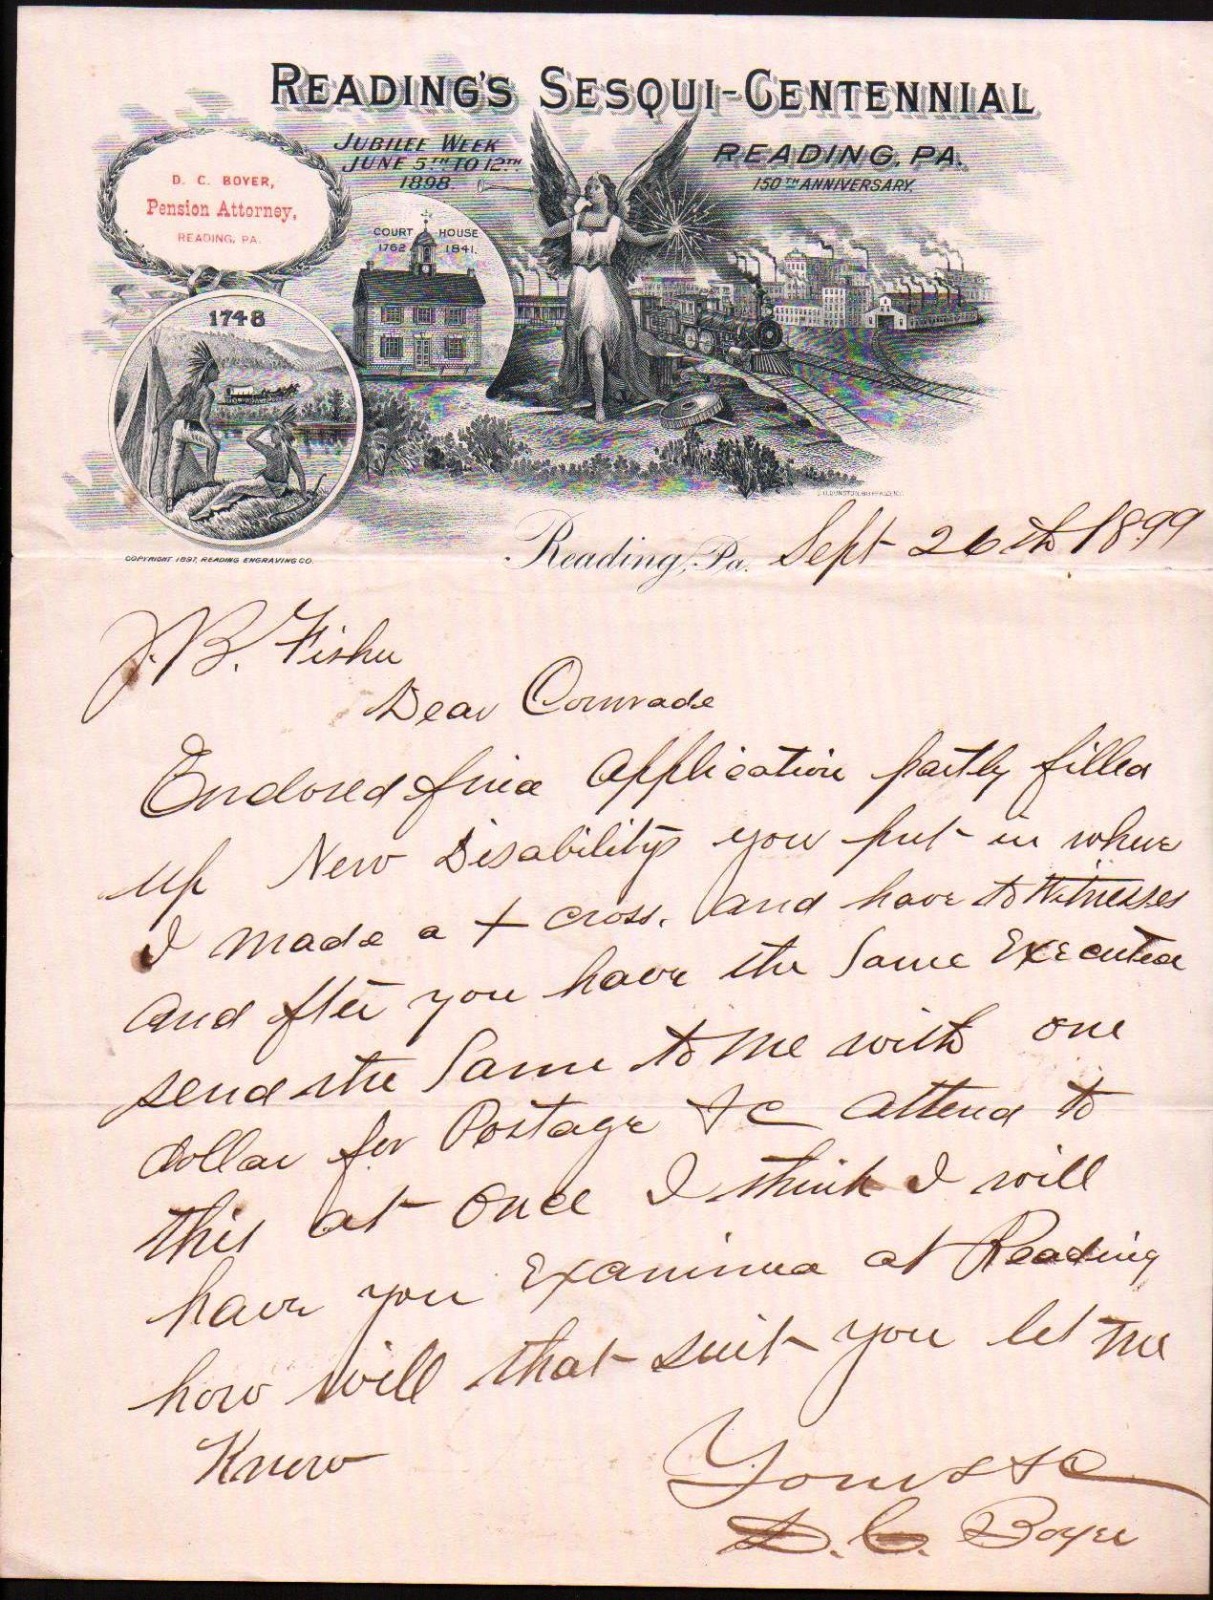 READING'S SESQUI-CENTENNIAL
JUBILEE WEEK
JUNE 5TH TO 12TH
1898
READING, PA.
150TH ANNIVERSARY.
D. C. BOYER,
Pension Attorney,
READING, PA.
COURT HOUSE
1762 1841
1748
COPYRIGHT 1897, READING ENGRAVING CO.
Reading, Pa. Sept 26th 1899
J. B. Fisher
Dear Comrade
Enclosed find Application partly filled
up New Disabilitys you put in where
I made a + cross. and have to Witnesses
and after you have the Same Executed
send the Same to me with one
dollar for Postage &c attend to
this at once I think I will
have you Examined at Reading
how will that suit you let me
Know
Yours &c
D. C. Boyer